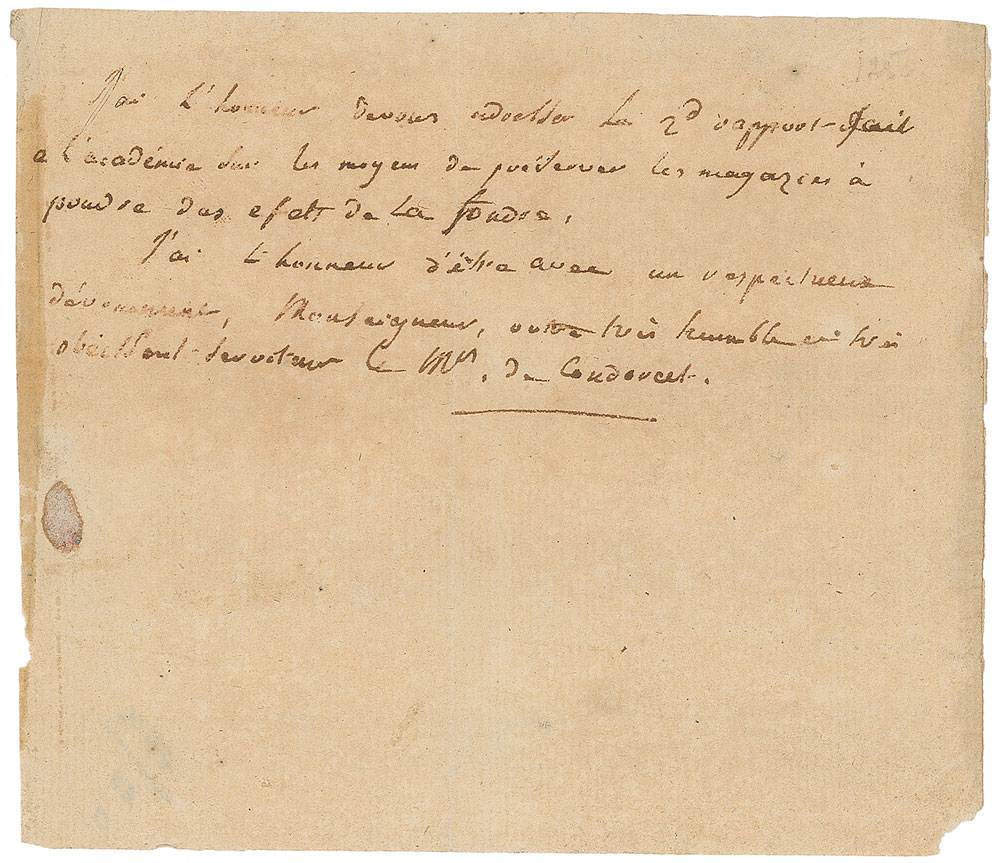 J'ai l'honneur de vous adresser le 2d rapport fait
a l'académie sur les moyens de préserver les magazins à
poudre des effets de la foudre.
J'ai l'honneur d'être avec un respectueux
dévouement, Monseigneur, votre très humble et très
obéissant serviteur le Mis. de Condorcet.